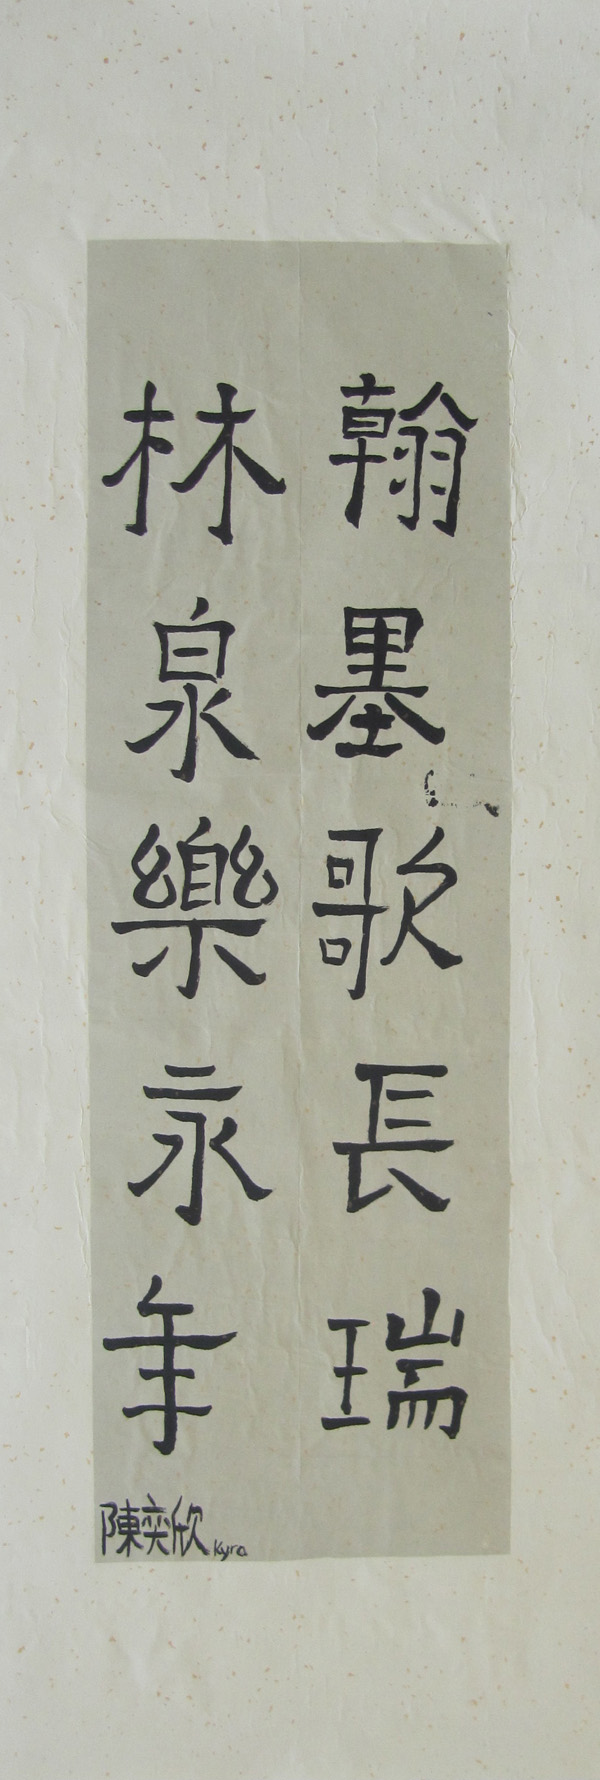 翰墨歌長瑞
林泉樂永年
陳奕欣 Kyra